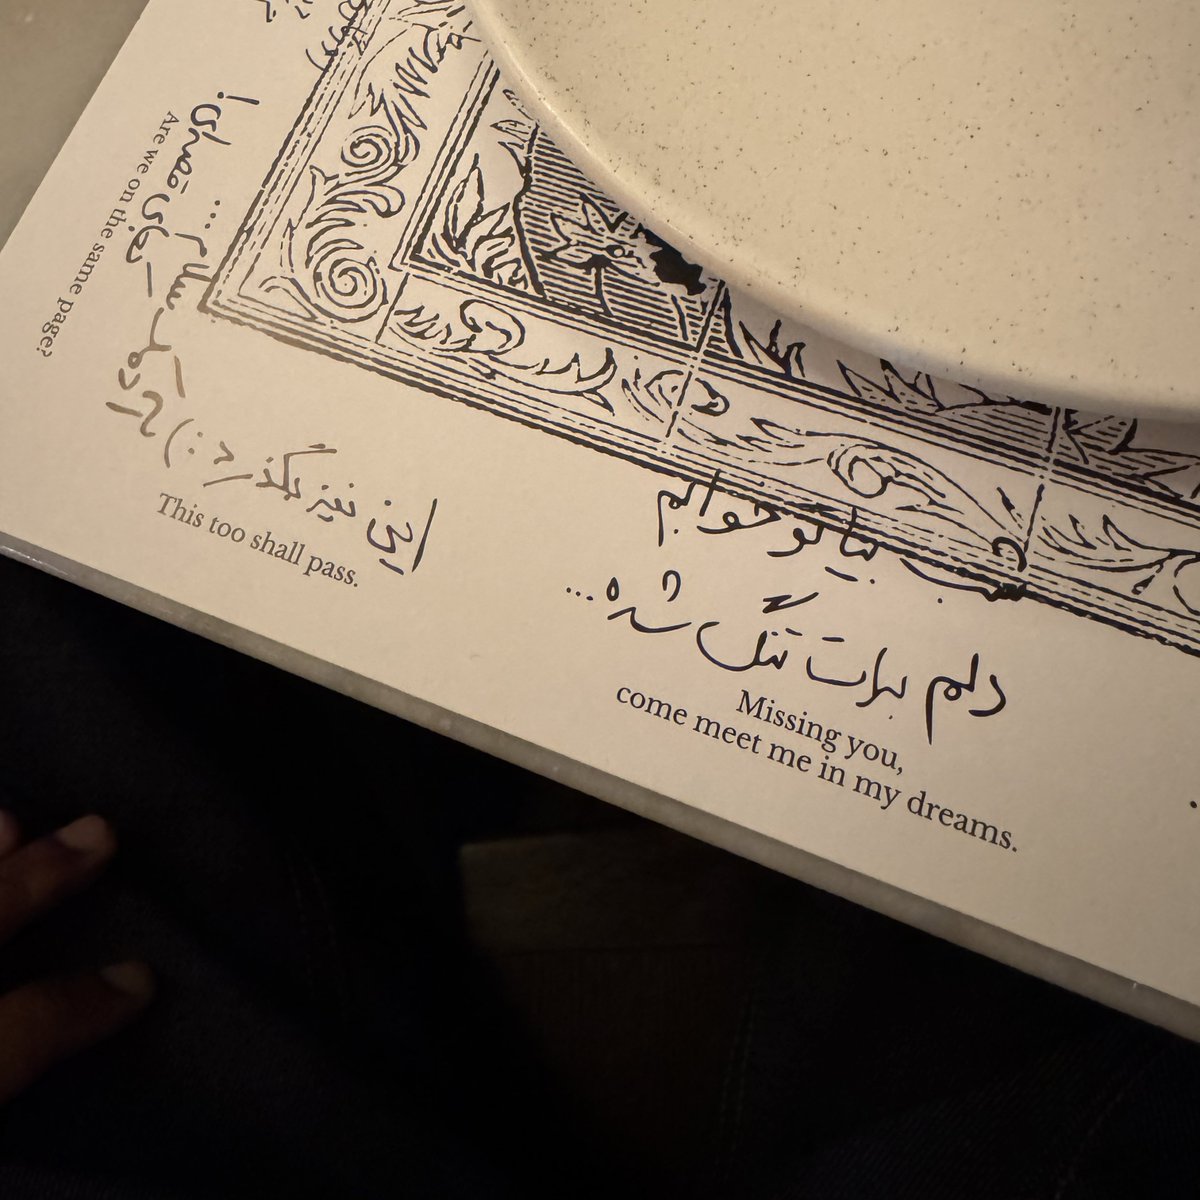 شب بیا تو خوابم
دلم برات تنگ شده...
Missing you,
come meet me in my dreams.
این نیز بگذرد :)
This too shall pass.
سلام...
Are we on the same page?